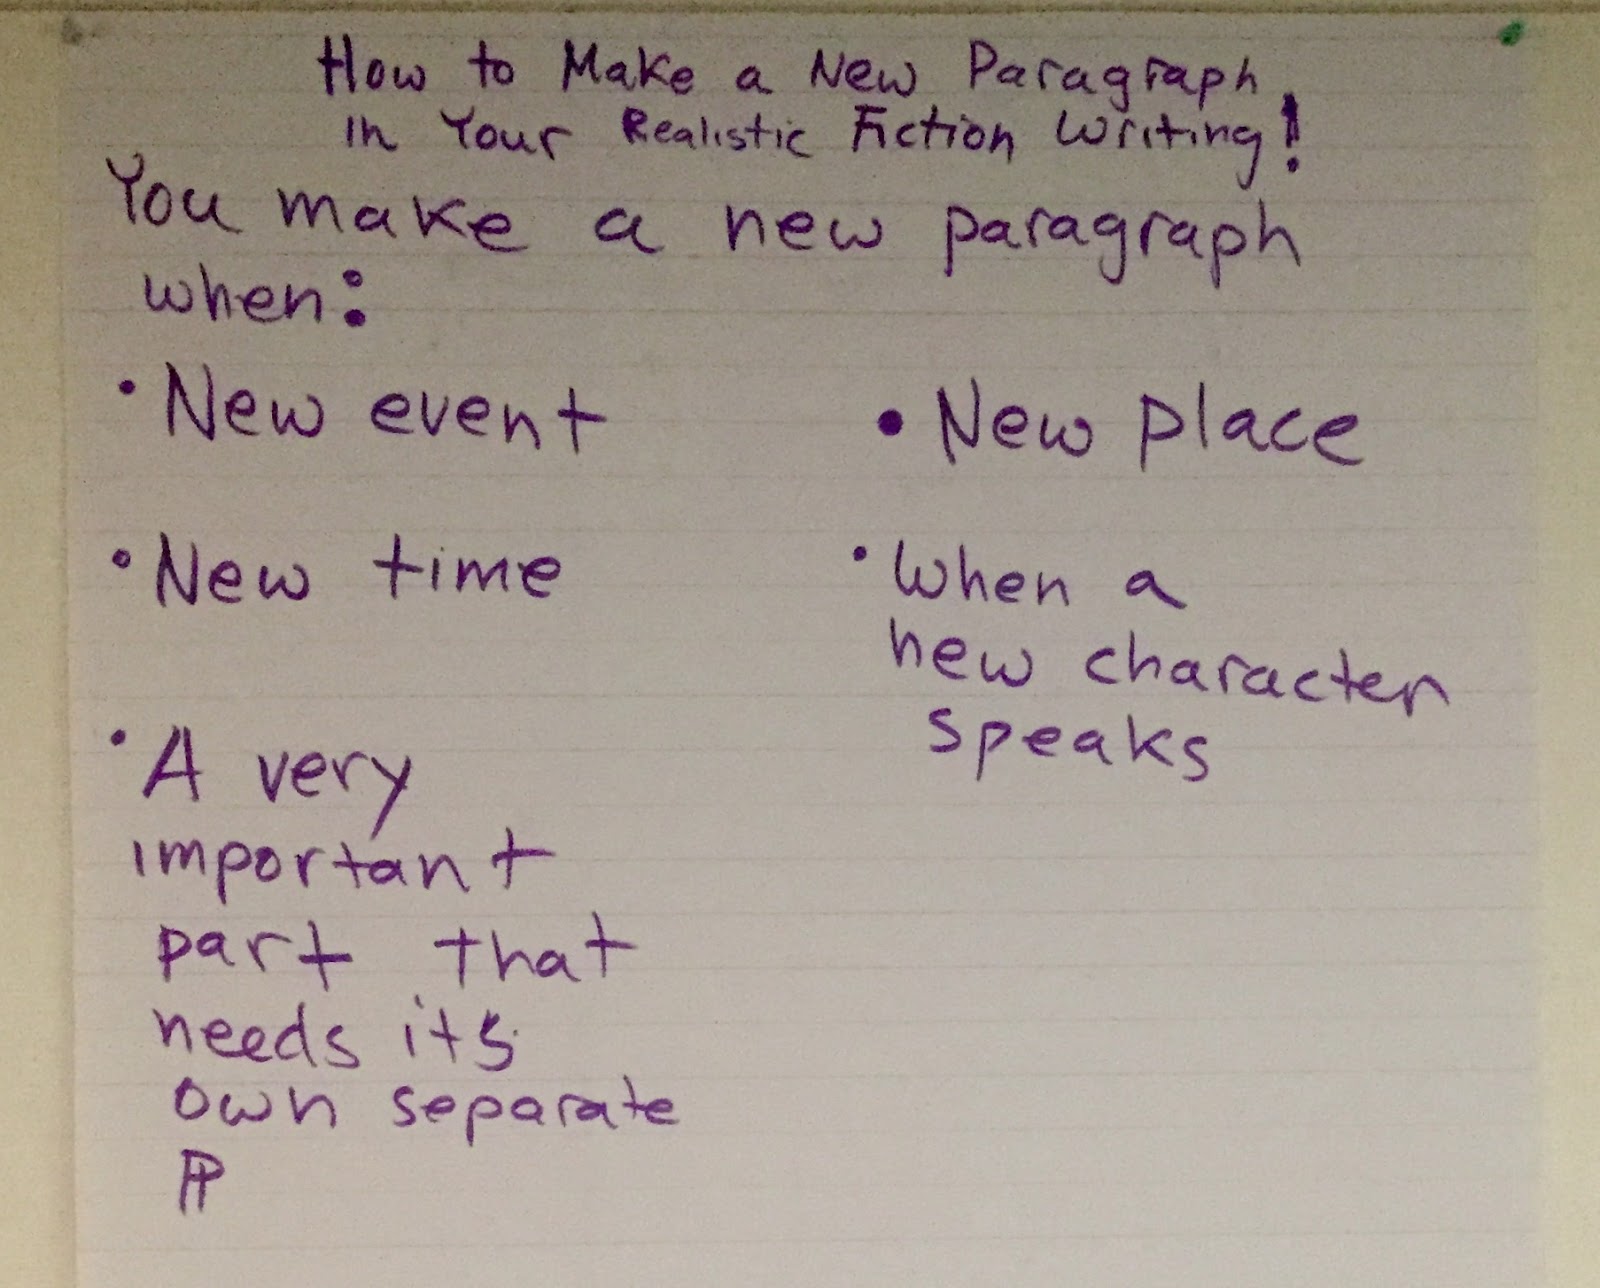 How to Make a New Paragraph
in Your Realistic Fiction Writing!
You make a new paragraph
when:
• New event
• New place
• New time
• When a
new character
speaks
• A very
important
part that
needs its
own separate
¶